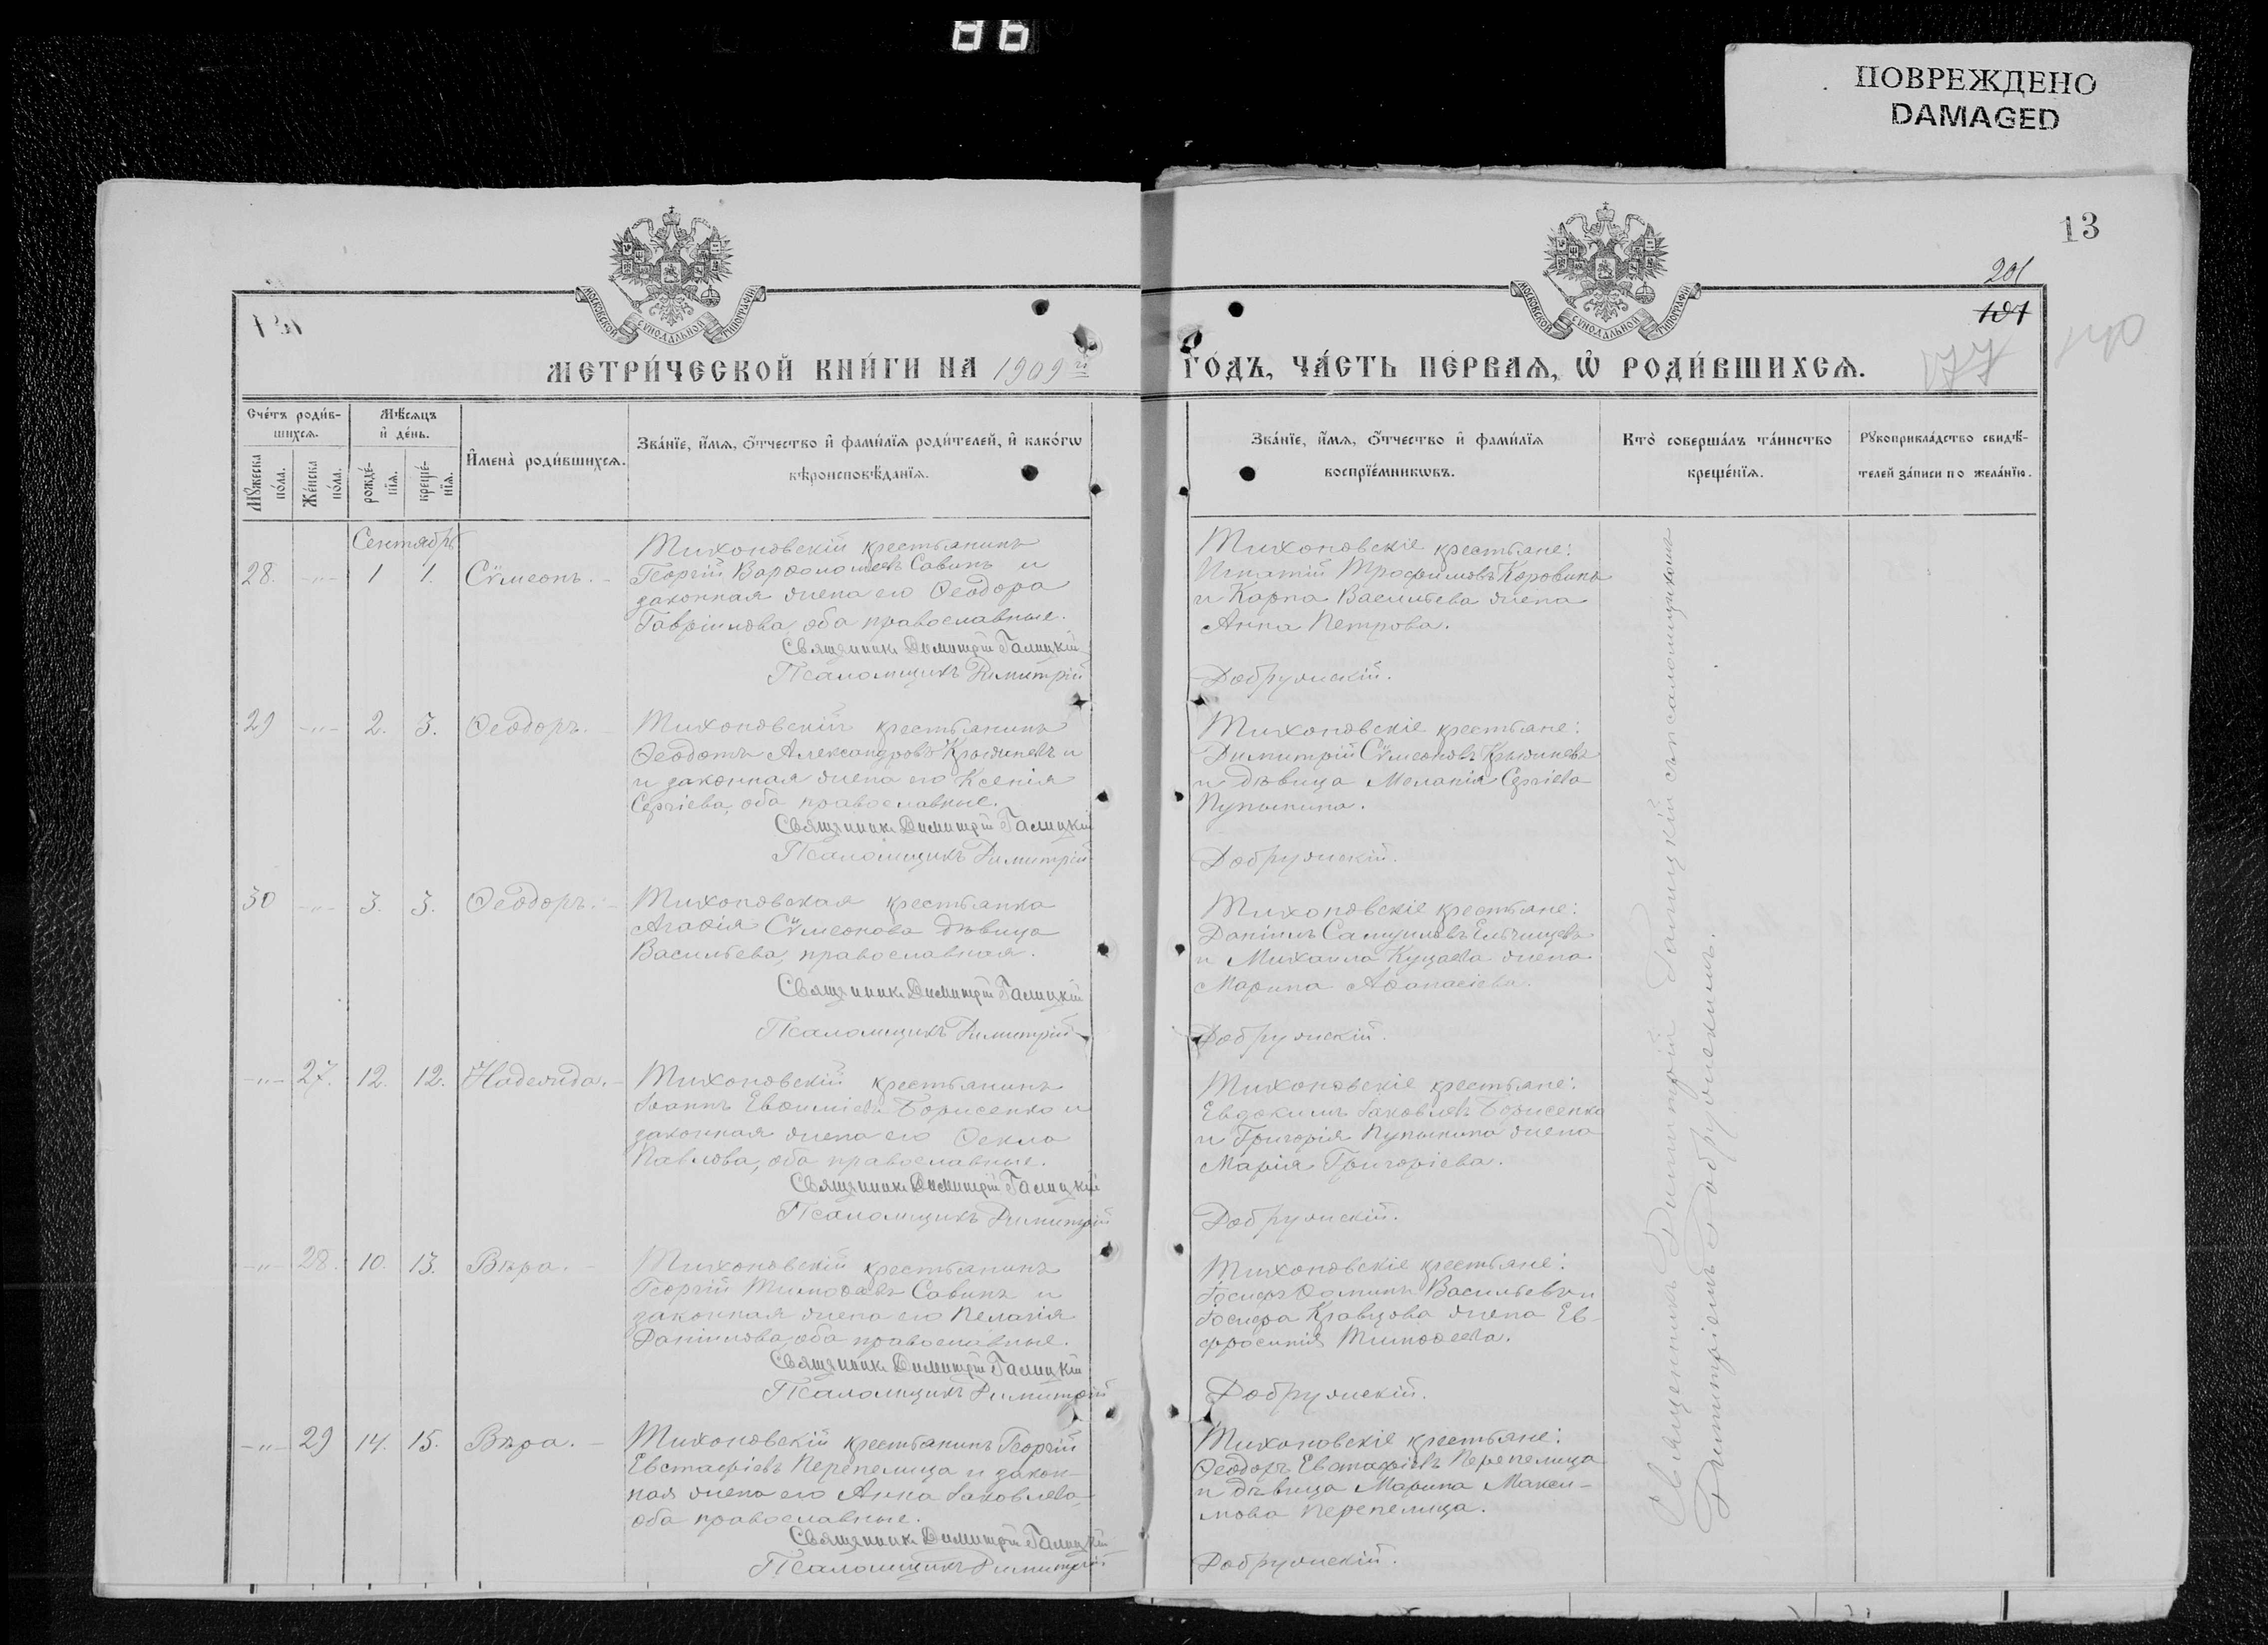 86
ПОВРЕЖДЕНО
DAMAGED
13
201
187
177
140
МОСКОВСКОЙ СѴНОДАЛЬНОЙ ТИПОГРАФІИ
МОСКОВСКОЙ СѴНОДАЛЬНОЙ ТИПОГРАФІИ
МЕТРИ́ЧЕСКОЙ КНИ́ГИ НА 1909й ГО́ДЪ, ЧА́СТЬ ПЕ́РВАѦ, Ѡ РОДИ́ВШИХСѦ.
Сче́тъ роди́в-
шихсѧ.
Мѣ́сѧцъ
и҆ де́нь.
Мꙋ́жеска по́ла.
Же́нска по́ла.
рожде́-
нїѧ.
креще́-
нїѧ.
И҆мена̀ роди́вшихсѧ.
Зва́нїе, и҆́мѧ, ѻ҆́тчество и҆ фами́лїѧ роди́телей, и҆ како́гѡ
вѣроисповѣ́данїѧ.
Зва́нїе, и҆́мѧ, ѻ҆́тчество и҆ фами́лїѧ
воспрїе́мникѡвъ.
Кто̀ соверша́лъ та́инство
креще́нїѧ.
Рꙋкоприкла́дство свидѣ́-
телей за́писи по жела́нїю.
Сентябрь
28. -"- 1 1. Сѵмеонъ.
Тихоновскій крестьянинъ
Георгій Варѳоломеевъ Савинъ и
законная жена его Ѳеодора
Гавріилова, оба православные.
Священникъ Димитрій Галицкій
Псаломщикъ Димитрій
Тихоновскіе крестьяне:
Игнатій Трофимовъ Коровинъ
и Карпа Васильева жена
Анна Петрова.
Добружскій.
29 -"- 2. 3. Ѳеодоръ.
Тихоновскій крестьянинъ
Ѳеодотъ Александровъ и
и законная жена его Ксенія
Сергіева, оба православные.
Священникъ Димитрій Галицкій
Псаломщикъ Димитрій
Тихоновскіе крестьяне:
Димитрій Сѵмеоновъ
и дѣвица Меланія Сергіева
Пупынина.
Добружскій.
30 -"- 3. 3. Ѳеодоръ.
Тихоновская крестьянка
Агаѳія Сѵмеонова дѣвица
Васильева, православная.
Священникъ Димитрій Галицкій
Псаломщикъ Димитрій
Тихоновскіе крестьяне:
Даніилъ Самуиловъ
и Михаила жена
Марина Аѳанасіева.
Добружскій.
-"- 27. 12. 12. Надежда.
Тихоновскій крестьянинъ
Іоаннъ Евѳиміевъ Борисенко и
законная жена его Ѳекла
Павлова, оба православные.
Священникъ Димитрій Галицкій
Псаломщикъ Димитрій
Тихоновскіе крестьяне:
Евдокимъ Іаковлевъ Борисенко
и Григорія Пупынина жена
Марія Григоріева.
Добружскій.
-"- 28. 10. 13. Вѣра.
Тихоновскій крестьянинъ
Георгій Тимоѳеевъ Савинъ и
законная жена его Пелагія
Даніилова, оба православные.
Священникъ Димитрій Галицкій
Псаломщикъ Димитрій
Тихоновскіе крестьяне:
Іосифъ Ѳоминъ Васильевъ и
Іосифа Кравцова жена Ев-
фросинія Тимоѳеева.
Добружскій.
-"- 29 14. 15. Вѣра.
Тихоновскій крестьянинъ Георгій
Евстафіевъ Перепелица и закон-
ная жена его Анна Іаковлева,
оба православные.
Священникъ Димитрій Галицкій
Псаломщикъ Димитрій
Тихоновскіе крестьяне:
Ѳеодоръ Евстафіевъ Перепелица
и дѣвица Марина Макси-
мова Перепелица.
Добружскій.
Священникъ Димитрій Галицкій съ псаломщикомъ
Димитріемъ Добружскимъ.